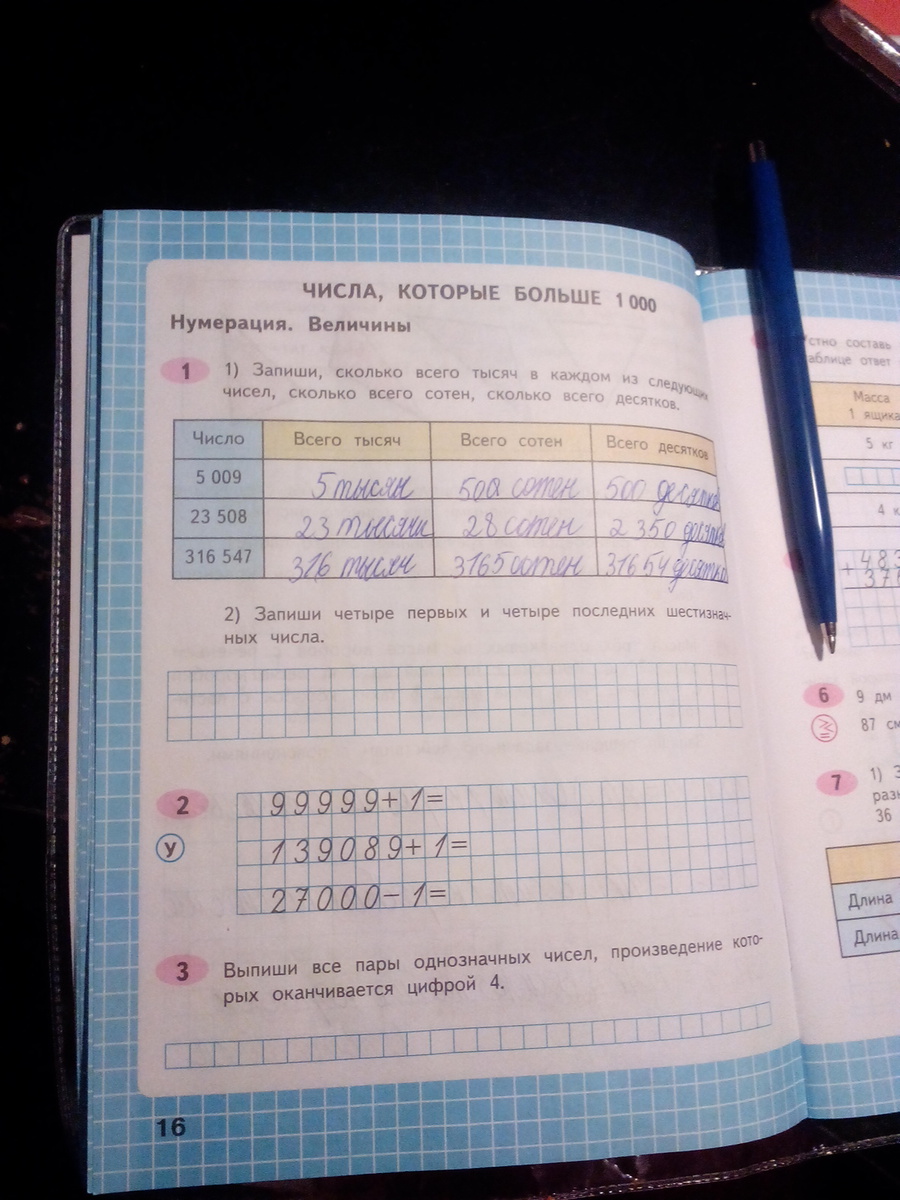 ЧИСЛА, КОТОРЫЕ БОЛЬШЕ 1 000
Нумерация. Величины
1 1) Запиши, сколько всего тысяч в каждом из следующих
чисел, сколько всего сотен, сколько всего десятков.
Число Всего тысяч Всего сотен Всего десятков
5 009 5 тысяч сотен 500
23 508 23 тысячи 28 сотен 2 350
316 547 316 тысяч 3165 сотен 31654
2) Запиши четыре первых и четыре последних шестизнач-
ных числа.
2 99999+1=
У 139089+1=
27000-1=
3 Выпиши все пары однозначных чисел, произведение кото-
рых оканчивается цифрой 4.
16
Устно составь
таблице ответ
Масса
1 ящика
5 кг
4 к
+ 483
37
6 9 дм
87 см
7 1) З
разн
36
Длина
Длина